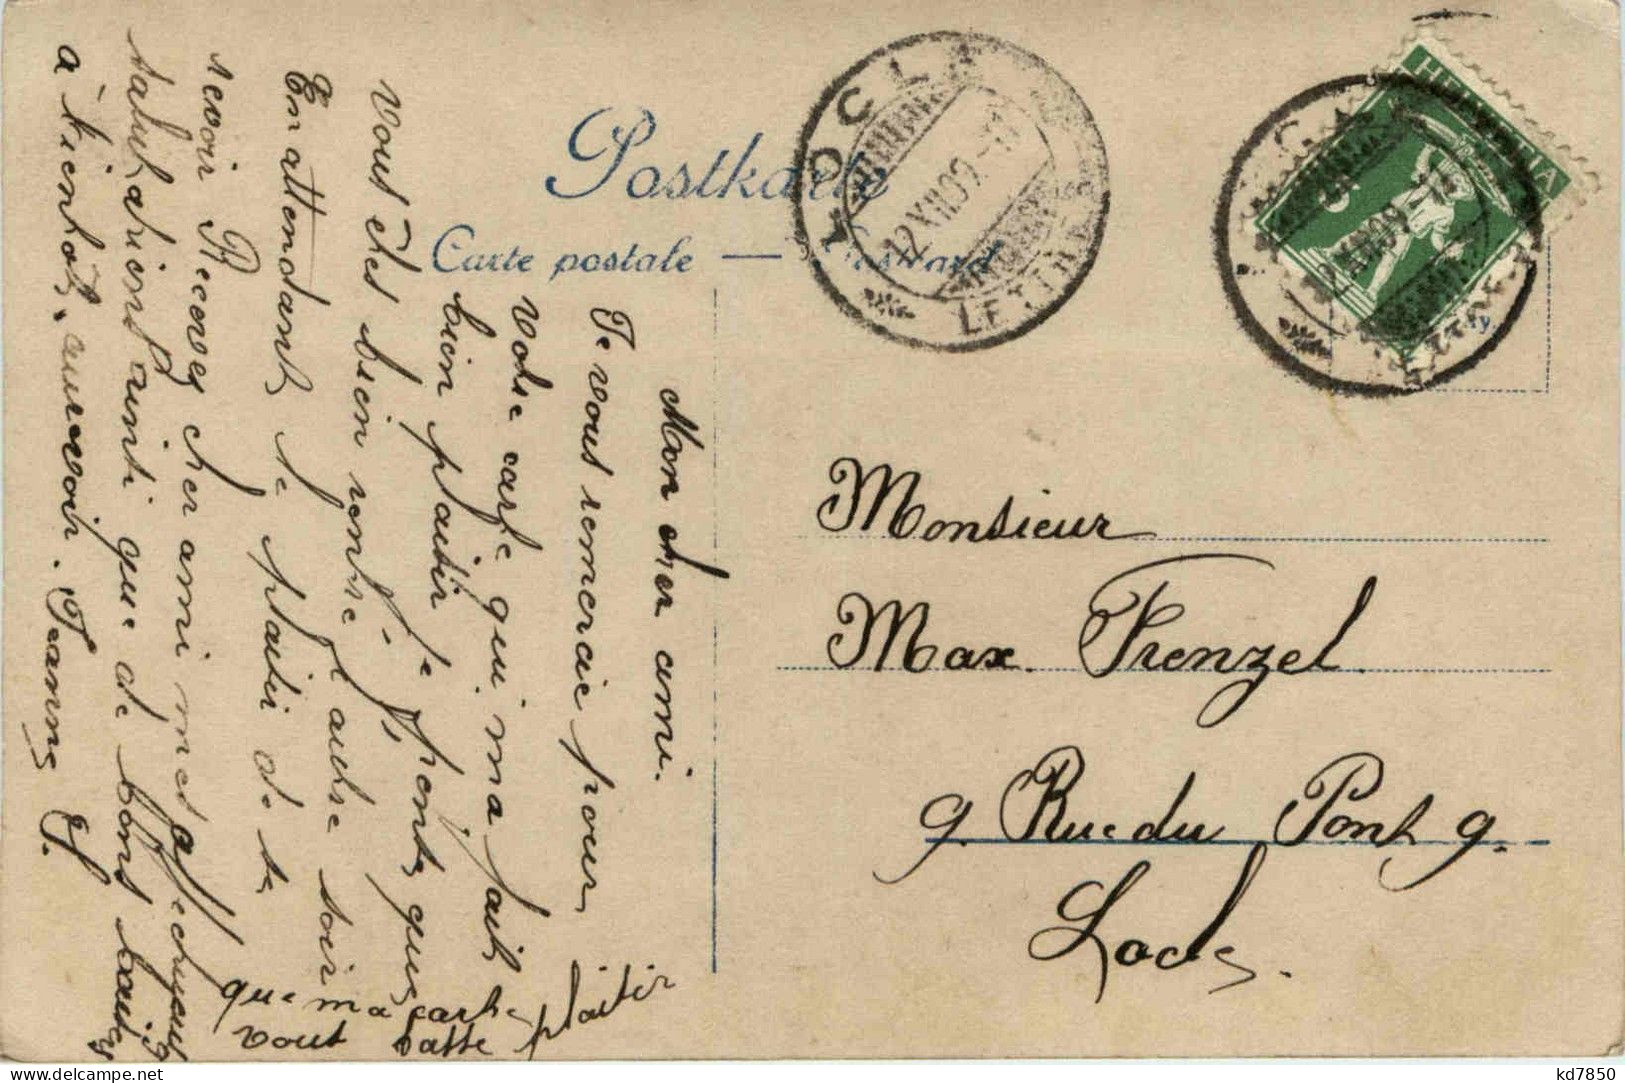 Postkarte
Carte postale — Postcard
LOCLE
12.XII.09.
LETTRES
HELVETIA
Mon cher ami.
Je vous remercie pour
votre carte qui ma fait
bien plaisir je pense que
vous êtes bien rentré l'autre soir
En attendant le plaisir de te
revoir Recevez cher ami mes affectueuses
salutations ainsi que de bons baisers
à bientôt, aurevoir. Jeanne J.
que ma carte
vous fasse plaisir
Monsieur
Max. Frenzel.
9. Rue du Pont 9.
Locle.
kd7850